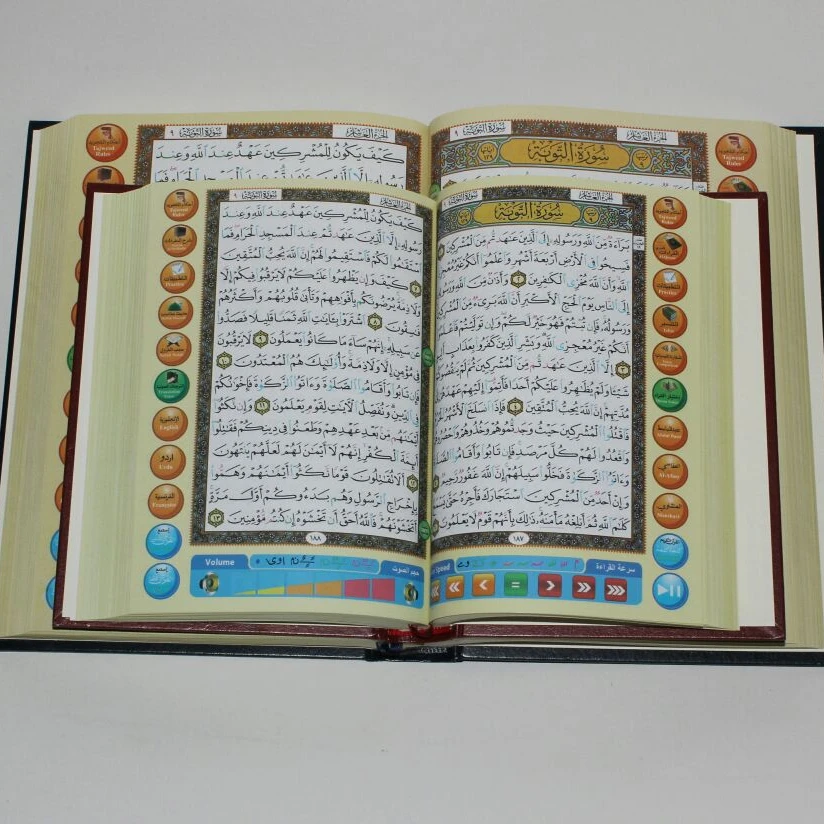 سورة التوبة ٩
الجزء العاشر
سُورَةُ التَّوْبَةِ
Tajweed Rules
سورة التوبة ٩
الجزء العاشر
كَيْفَ يَكُونُ لِلْمُشْرِكِينَ عَهْدٌ عِندَ ٱللَّهِ وَعِندَ
Tajweed Rules
سورة التوبة ٩
الجزء العاشر
سُورَةُ التَّوْبَةِ
بَرَآءَةٌ مِّنَ ٱللَّهِ وَرَسُولِهِۦٓ إِلَى ٱلَّذِينَ عَٰهَدتُّم مِّنَ ٱلْمُشْرِكِينَ ١
فَسِيحُوا۟ فِى ٱلْأَرْضِ أَرْبَعَةَ أَشْهُرٍ وَٱعْلَمُوٓا۟ أَنَّكُمْ غَيْرُ مُعْجِزِى
ٱللَّهِ وَأَنَّ ٱللَّهَ مُخْزِى ٱلْكَٰفِرِينَ ٢ وَأَذَٰنٌ مِّنَ ٱللَّهِ وَرَسُولِهِۦٓ
إِلَى ٱلنَّاسِ يَوْمَ ٱلْحَجِّ ٱلْأَكْبَرِ أَنَّ ٱللَّهَ بَرِىٓءٌ مِّنَ ٱلْمُشْرِكِينَ
وَرَسُولُهُۥ فَإِن تُبْتُمْ فَهُوَ خَيْرٌ لَّكُمْ وَإِن تَوَلَّيْتُمْ فَٱعْلَمُوٓا۟
أَنَّكُمْ غَيْرُ مُعْجِزِى ٱللَّهِ وَبَشِّرِ ٱلَّذِينَ كَفَرُوا۟ بِعَذَابٍ أَلِيمٍ
٣ إِلَّا ٱلَّذِينَ عَٰهَدتُّم مِّنَ ٱلْمُشْرِكِينَ ثُمَّ لَمْ يَنقُصُوكُمْ
شَيْـًٔا وَلَمْ يُظَٰهِرُوا۟ عَلَيْكُمْ أَحَدًا فَأَتِمُّوٓا۟ إِلَيْهِمْ عَهْدَهُمْ إِلَىٰ
مُدَّتِهِمْ إِنَّ ٱللَّهَ يُحِبُّ ٱلْمُتَّقِينَ ٤ فَإِذَا ٱنسَلَخَ ٱلْأَشْهُرُ ٱلْحُرُمُ
فَٱقْتُلُوا۟ ٱلْمُشْرِكِينَ حَيْثُ وَجَدتُّمُوهُمْ وَخُذُوهُمْ وَٱحْصُرُوهُمْ
وَٱقْعُدُوا۟ لَهُمْ كُلَّ مَرْصَدٍ فَإِن تَابُوا۟ وَأَقَامُوا۟ ٱلصَّلَوٰةَ
وَءَاتَوُا۟ ٱلزَّكَوٰةَ فَخَلُّوا۟ سَبِيلَهُمْ إِنَّ ٱللَّهَ غَفُورٌ رَّحِيمٌ ٥
وَإِنْ أَحَدٌ مِّنَ ٱلْمُشْرِكِينَ ٱسْتَجَارَكَ فَأَجِرْهُ حَتَّىٰ يَسْمَعَ
كَلَٰمَ ٱللَّهِ ثُمَّ أَبْلِغْهُ مَأْمَنَهُۥ ذَٰلِكَ بِأَنَّهُمْ قَوْمٌ لَّا يَعْلَمُونَ
١٨٧
سرعة القراءة
Speed
Tajweed Rules
Practice
العفاسي
Al-Afasy
المنشاوي
Minshawi
سورة التوبة ٩
الجزء العاشر
كَيْفَ يَكُونُ لِلْمُشْرِكِينَ عَهْدٌ عِندَ ٱللَّهِ وَعِندَ
رَسُولِهِۦٓ إِلَّا ٱلَّذِينَ عَٰهَدتُّمْ عِندَ ٱلْمَسْجِدِ ٱلْحَرَامِ فَمَا
ٱسْتَقَٰمُوا۟ لَكُمْ فَٱسْتَقِيمُوا۟ لَهُمْ إِنَّ ٱللَّهَ يُحِبُّ ٱلْمُتَّقِينَ
٧ كَيْفَ وَإِن يَظْهَرُوا۟ عَلَيْكُمْ لَا يَرْقُبُوا۟ فِيكُمْ إِلًّا
وَلَا ذِمَّةً يُرْضُونَكُم بِأَفْوَٰهِهِمْ وَتَأْبَىٰ قُلُوبُهُمْ وَأَكْثَرُهُمْ
فَٰسِقُونَ ٨ ٱشْتَرَوْا۟ بِـَٔايَٰتِ ٱللَّهِ ثَمَنًا قَلِيلًا فَصَدُّوا۟
عَن سَبِيلِهِۦٓ إِنَّهُمْ سَآءَ مَا كَانُوا۟ يَعْمَلُونَ ٩ لَا يَرْقُبُونَ
فِى مُؤْمِنٍ إِلًّا وَلَا ذِمَّةً وَأُو۟لَٰٓئِكَ هُمُ ٱلْمُعْتَدُونَ ١٠
فَإِن تَابُوا۟ وَأَقَامُوا۟ ٱلصَّلَوٰةَ وَءَاتَوُا۟ ٱلزَّكَوٰةَ فَإِخْوَٰنُكُمْ
فِى ٱلدِّينِ وَنُفَصِّلُ ٱلْـَٔايَٰتِ لِقَوْمٍ يَعْلَمُونَ ١١ وَإِن نَّكَثُوٓا۟
أَيْمَٰنَهُم مِّنۢ بَعْدِ عَهْدِهِمْ وَطَعَنُوا۟ فِى دِينِكُمْ فَقَٰتِلُوٓا۟
أَئِمَّةَ ٱلْكُفْرِ إِنَّهُمْ لَآ أَيْمَٰنَ لَهُمْ لَعَلَّهُمْ يَنتَهُونَ
١٢ أَلَا تُقَٰتِلُونَ قَوْمًا نَّكَثُوٓا۟ أَيْمَٰنَهُمْ وَهَمُّوا۟
بِإِخْرَاجِ ٱلرَّسُولِ وَهُم بَدَءُوكُمْ أَوَّلَ مَرَّةٍ
أَتَخْشَوْنَهُمْ فَٱللَّهُ أَحَقُّ أَن تَخْشَوْهُ إِن كُنتُم مُّؤْمِنِينَ ١٣
١٨٨
حجم الصوت
Volume
Tajweed Rules
Practice
الإنجليزية
English
اردو
Urdu
الفرنسية